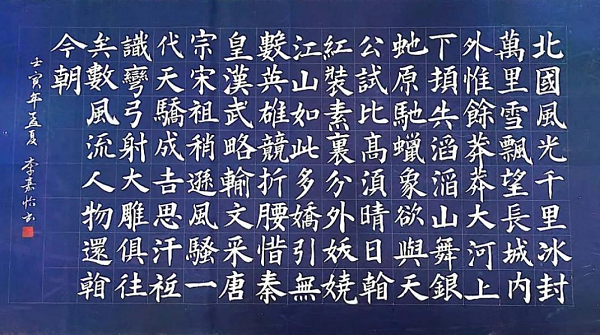 北國風光千里冰封
萬里雪飄望長城內
外惟餘莽莽大河上
下頓失滔滔山舞銀
虵原馳蠟象欲與天
公試比高須晴日看
紅裝素裹分外妖嬈
江山如此多嬌引無
數英雄競折腰惜秦
皇漢武略輸文采唐
宗宋祖稍遜風騷一
代天驕成吉思汗祗
識彎弓射大雕俱往
矣數風流人物還看
今朝
壬寅年孟夏 李嘉怡書